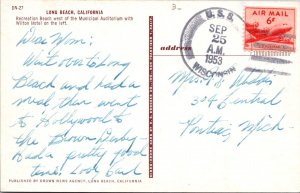 DN-27
LONG BEACH, CALIFORNIA
Recreation Beach west of the Municipal Auditorium with
Wilton Hotel on the left.
Dear Mom:
Went over to Long
Beach and had a
meal then went
to Hollywood to
the Brown Derby
had a pretty good
time. Love Earl
PUBLISHED BY CROWN NEWS AGENCY, LONG BEACH, CALIFORNIA
address
U.S.S.
SEP
25
A.M.
1953
WISCONSIN
AIR MAIL
6¢
304 Central
Pontiac, Mich.